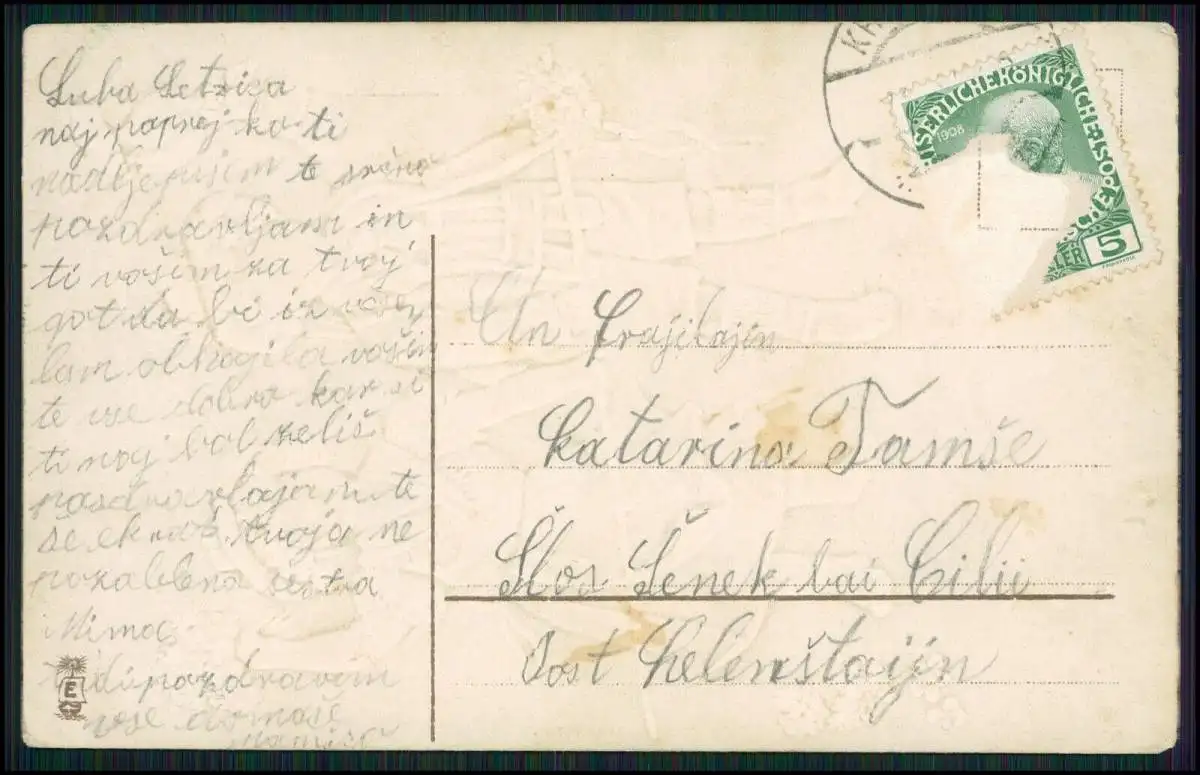 Luba Letzica
naj naprej ko ti
nadlje pišem te srčno
pozdravljam in
ti vošim za tvoj
got da bi iz
lam obhagila vošim
te vse dobro kar si
ti naj bol zeliš
posdravlajam te
še ekrat tvoja ne
pozablena sestra
Mimac
tudi pozdravim
vse domače
E
KR
KAISERLICHEKÖNIGLICHE
POST
1908
LER 5
An Frajilajn
Katarina Tamše
Šlos Šenek bai Cilii
Post Helenštajn